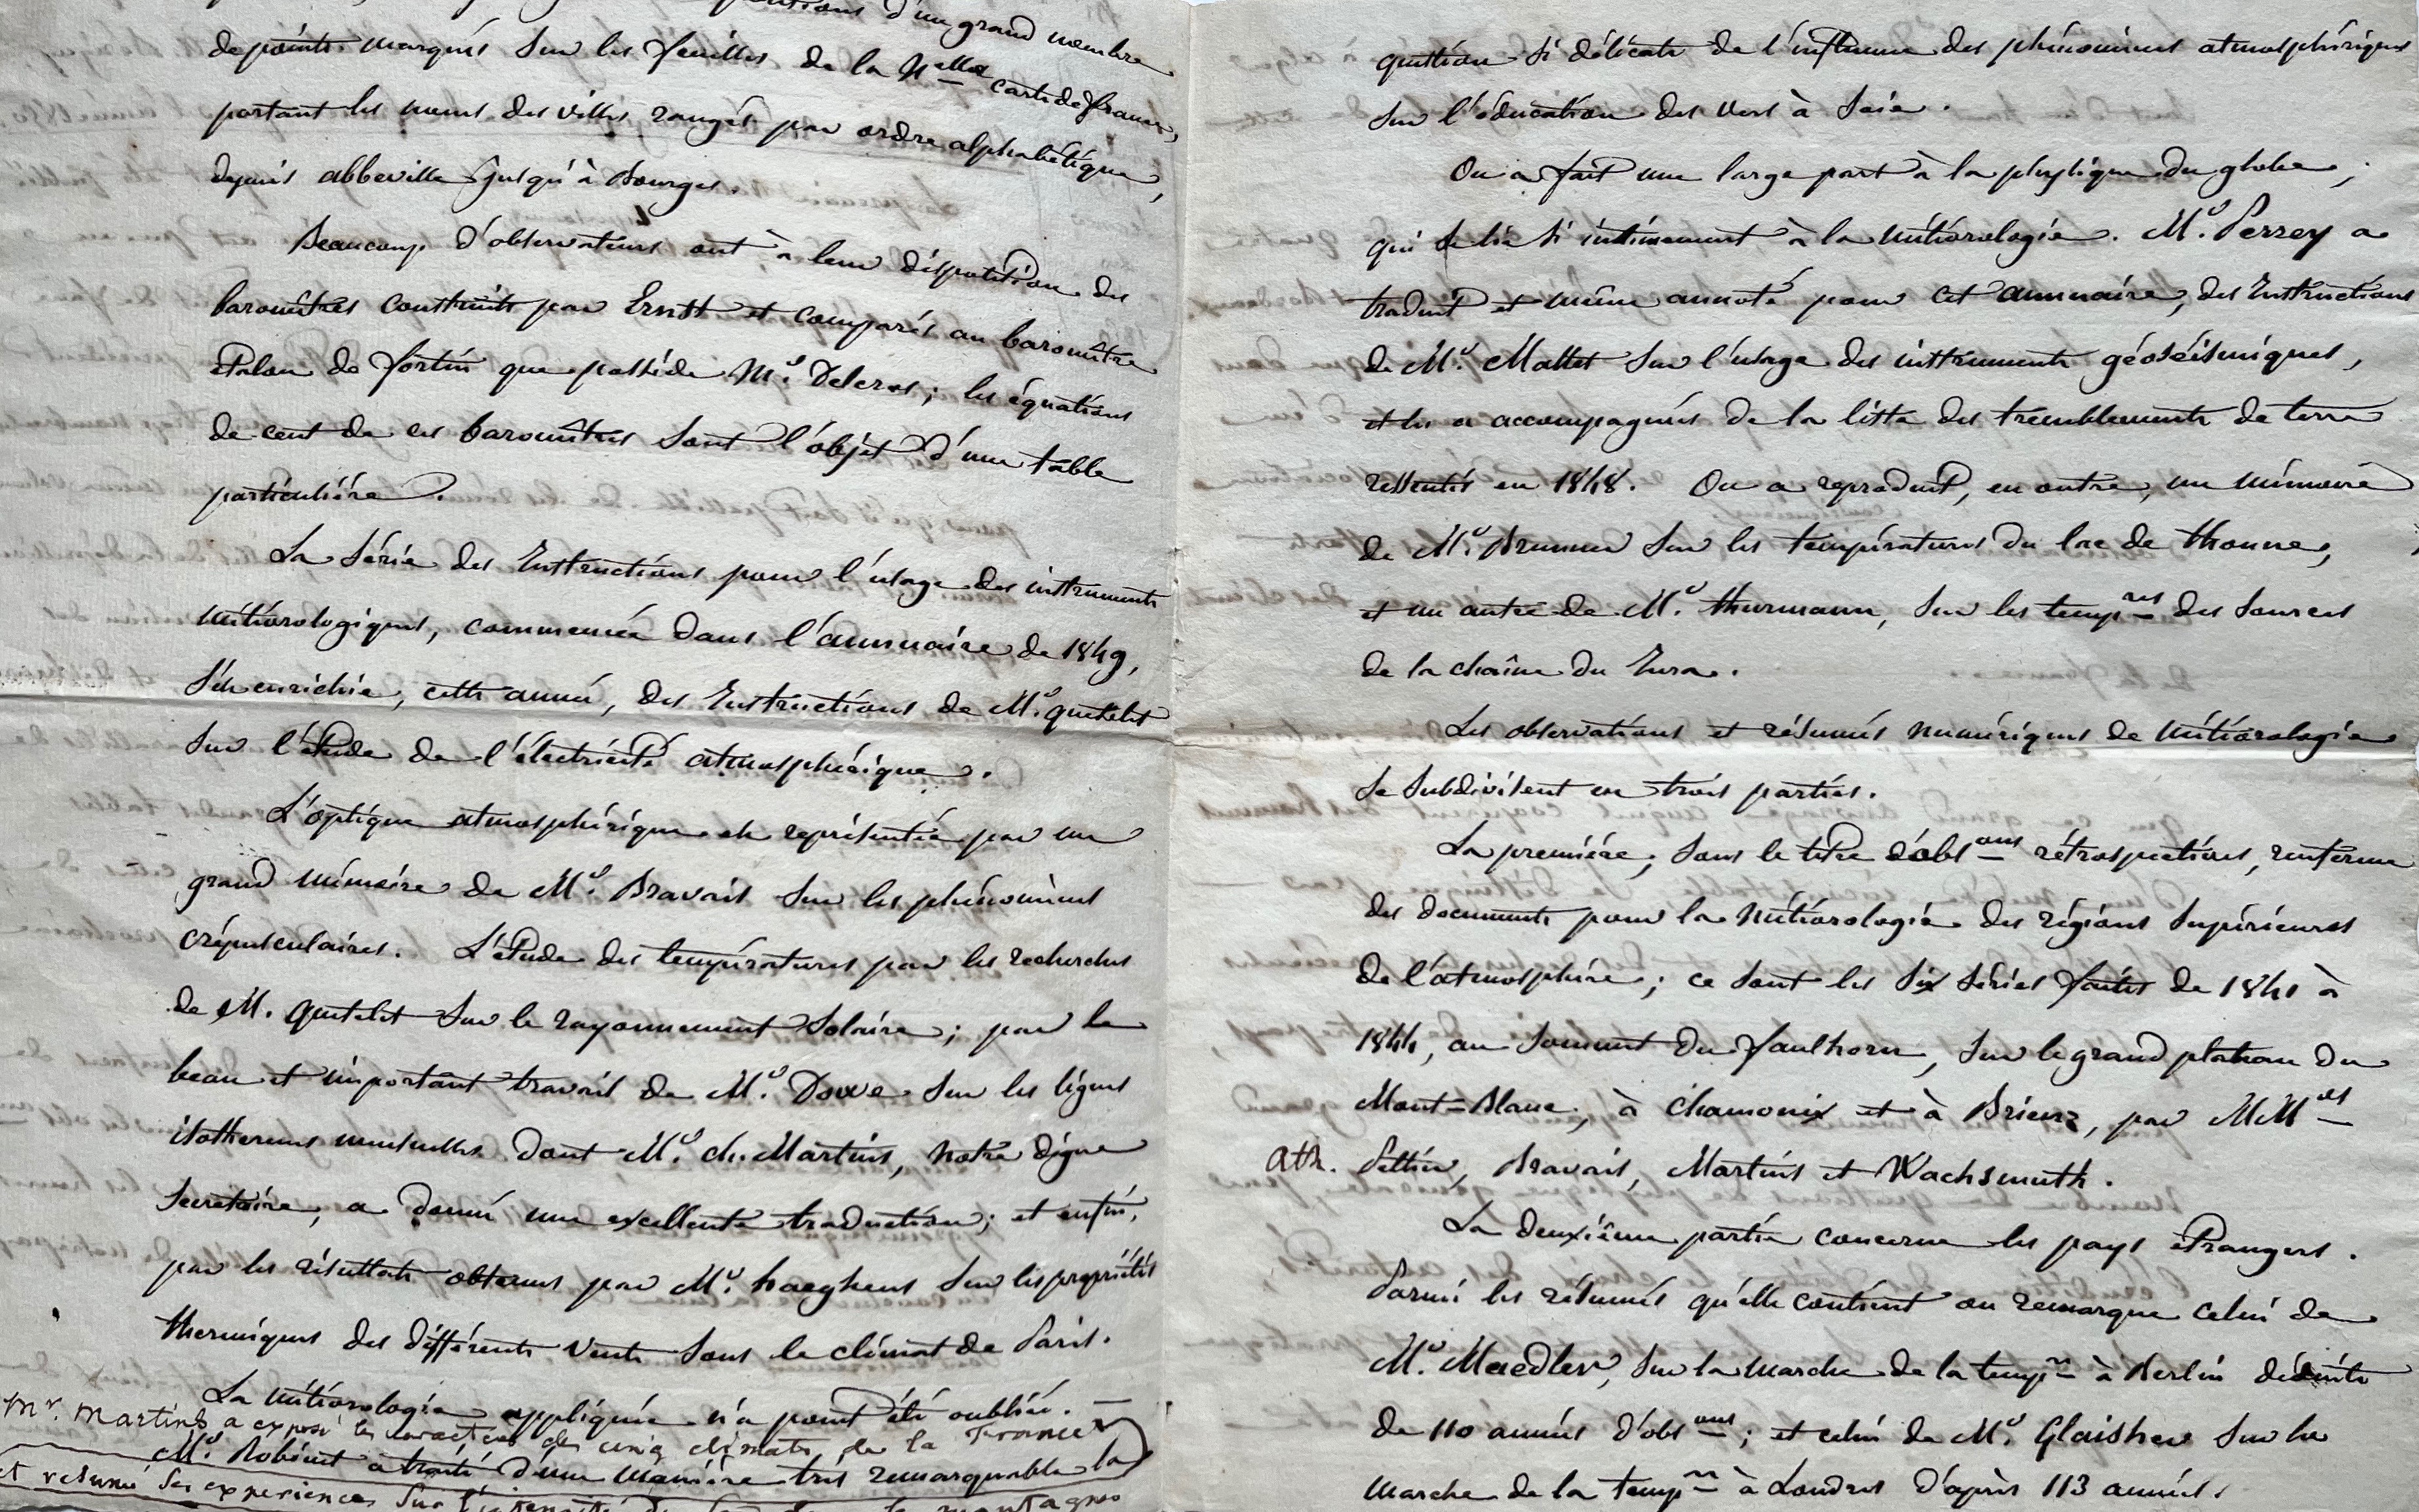 d'un grand nombre
de points marqués sur les feuilles de la Nelle carte de france,
portant les noms des villes rangés par ordre alphabétique,
depuis abbeville jusqu'à Bourges.
Beaucoup d'observateurs ont à leur disposition des
baromètres construits par Ernst et comparés au baromètre
étalon de fortin que possède Mr. Delcros ; les équations
de cent de ces baromètres sont l'objet d'une table
particulière.
La série des Instructions pour l'usage des instruments
météorologiques, commencée dans l'annuaire de 1849,
s'est enrichie, cette année, des Instructions de Mr. quetelet
sur l'étude de l'électricité atmosphérique.
L'optique atmosphérique est représentée par un
grand mémoire de Mr. Bravais sur les phénomènes
crépusculaires. L'étude des températures par les recherches
de M. quetelet sur le rayonnement solaire ; par le
beau et important travail de Mr. Dove sur les lignes
isothermes mensuelles dont Mr. ch. Martins, notre digne
secrétaire, a donné une excellente traduction ; et enfin,
par les résultats obtenus par Mr. haeghens sur les propriétés
thermiques des différents vents sous le climat de Paris.
La météorologie appliquée n'a point été oubliée. —
Mr. Martins a exposé les caractères des cinq climats de la France
Mr. Robinet a traité d'une manière très remarquable la
et resumé ses experiences sur l'intensité montagnes
question si délicate de l'influence des phénomènes atmosphériques
sur l'éducation des vers à soie.
On a fait une large part à la physique du globe ;
qui se lie si intimement à la météorologie. Mr. Perrey a
traduit et même annoté pour cet annuaire, des Instructions
de Mr. Mallet sur l'usage des instruments géoséismiques,
et les a accompagnés de la liste des tremblements de terre
ressentis en 1848. On a reproduit, en outre, un mémoire
de Mr. Brunner sur les températures du lac de thoune,
et un autre de Mr. thurmann, sur les tempres des sources
de la chaîne du Jura.
Les observations et résumés numériques de météorologie
se subdivisent en trois parties.
La première, sous le titre d'obsons rétrospectives, renferme
des documents pour la météorologie des régions supérieures
de l'atmosphère ; ce sont les six séries faites de 1841 à
1844, au sommet du faulhorn, sur le grand plateau du
Mont-Blanc, à Chamonix et à Brienz, par MMrs
ath. Peltier, Bravais, Martins et Wachsmuth.
La deuxième partie concerne les pays étrangers.
Parmi les résumés qu'elle contient on remarque celui de
Mr. Maedler, sur la marche de la tempre à Berlin déduite
de 110 années d'obsons ; et celui de Mr. Glaisher sur la
marche de la tempre à Londres d'après 113 années.